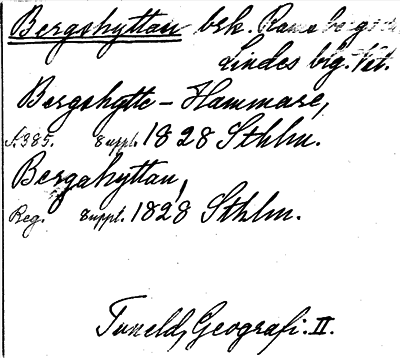 Bergshyttan brk. Ramsbergs
Lindes blg. Vst.
Bergshytte - Hammare,
A 385. Suppl. 1828 Sthlm.
Bergshyttan,
Reg. Suppl. 1828 Sthlm.
Tuneld, Geografi. II.